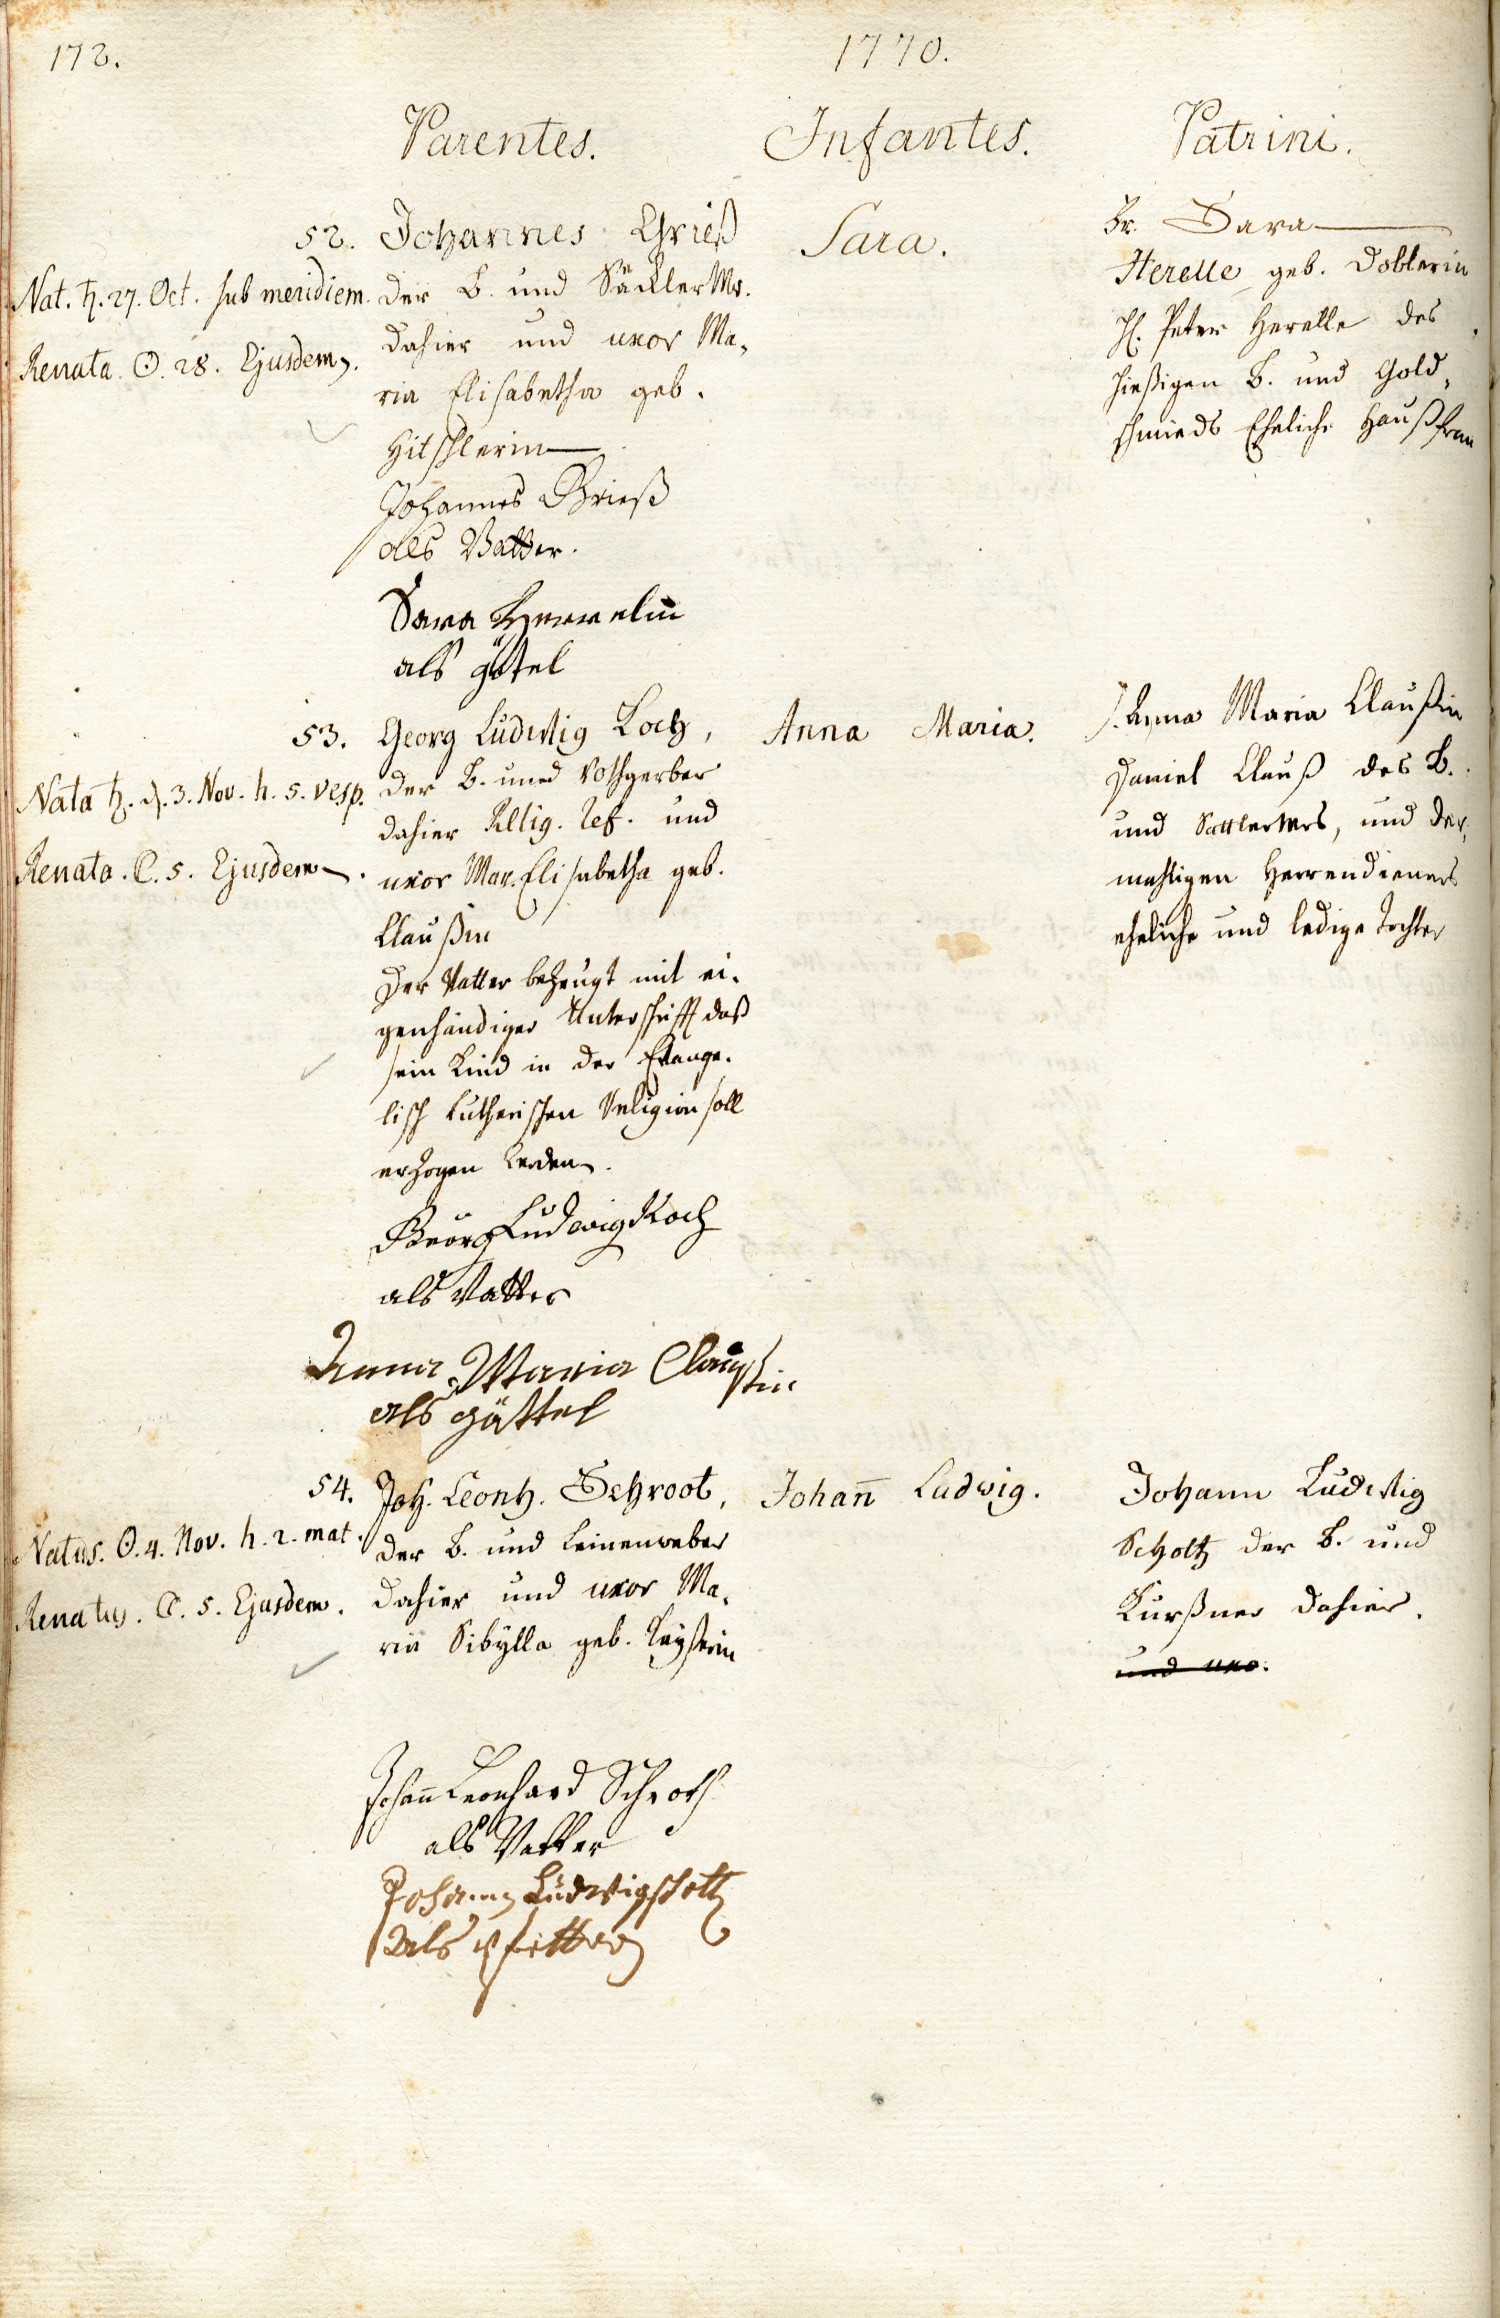 172.
1770.
Parentes.
Infantes.
Patrini.
52.
Nat. ♄. 27. Oct. sub meridiem.
Renata. ☉. 28. Ejusdem.
Johannes Grieß
der B. und Säckler Mr.
dahier und uxor Ma,
ria Elisabetha geb.
Hitschlerin
Johannes Grieß
als Vatter.
Sara Herrelin
als götel
Sara.
Fr. Sara
Herelle geb. Doblerin
H. Peter Herelle des
hießigen B. und Gold,
schmieds Eheliche Haußfrau
53.
Nata ♄. d. 3. Nov. h. 5. vesp.
Renata. ☾. 5. Ejusdem.
Georg Ludwig Koch,
der B. und Rothgerber
dahier Relig. Ref. und
uxor Mar. Elisabetha geb.
Claußin
Der Vatter bezeugt mit ei,
genhändiger Unterschrifft daß
sein Kind in der Evange,
lisch Lutherischen Religion soll
erzogen werden.
Georg Ludwig Koch
als Vatter
Anna Maria Claussin
als göttel
Anna Maria.
J. Anna Maria Claußin
Daniel Clauß des B.
und Sattlermrs, und der,
mahligen Herrendieners
eheliche und ledige Tochter
54.
Natus. ☉. 4. Nov. h. 2. mat.
Renatus. ☾. 5. Ejusdem.
Joh. Leonh. Schroot,
der B. und Leinenweber
dahier und uxor Ma,
ria Sibylla geb.
Johann Leonhard Schroth
als Vatter
Johann Ludwig Scholtz
Als Pfetter
Johañ Ludwig.
Johann Ludwig
Scholtz der B. und
Kurßner dahier.
und uxo.